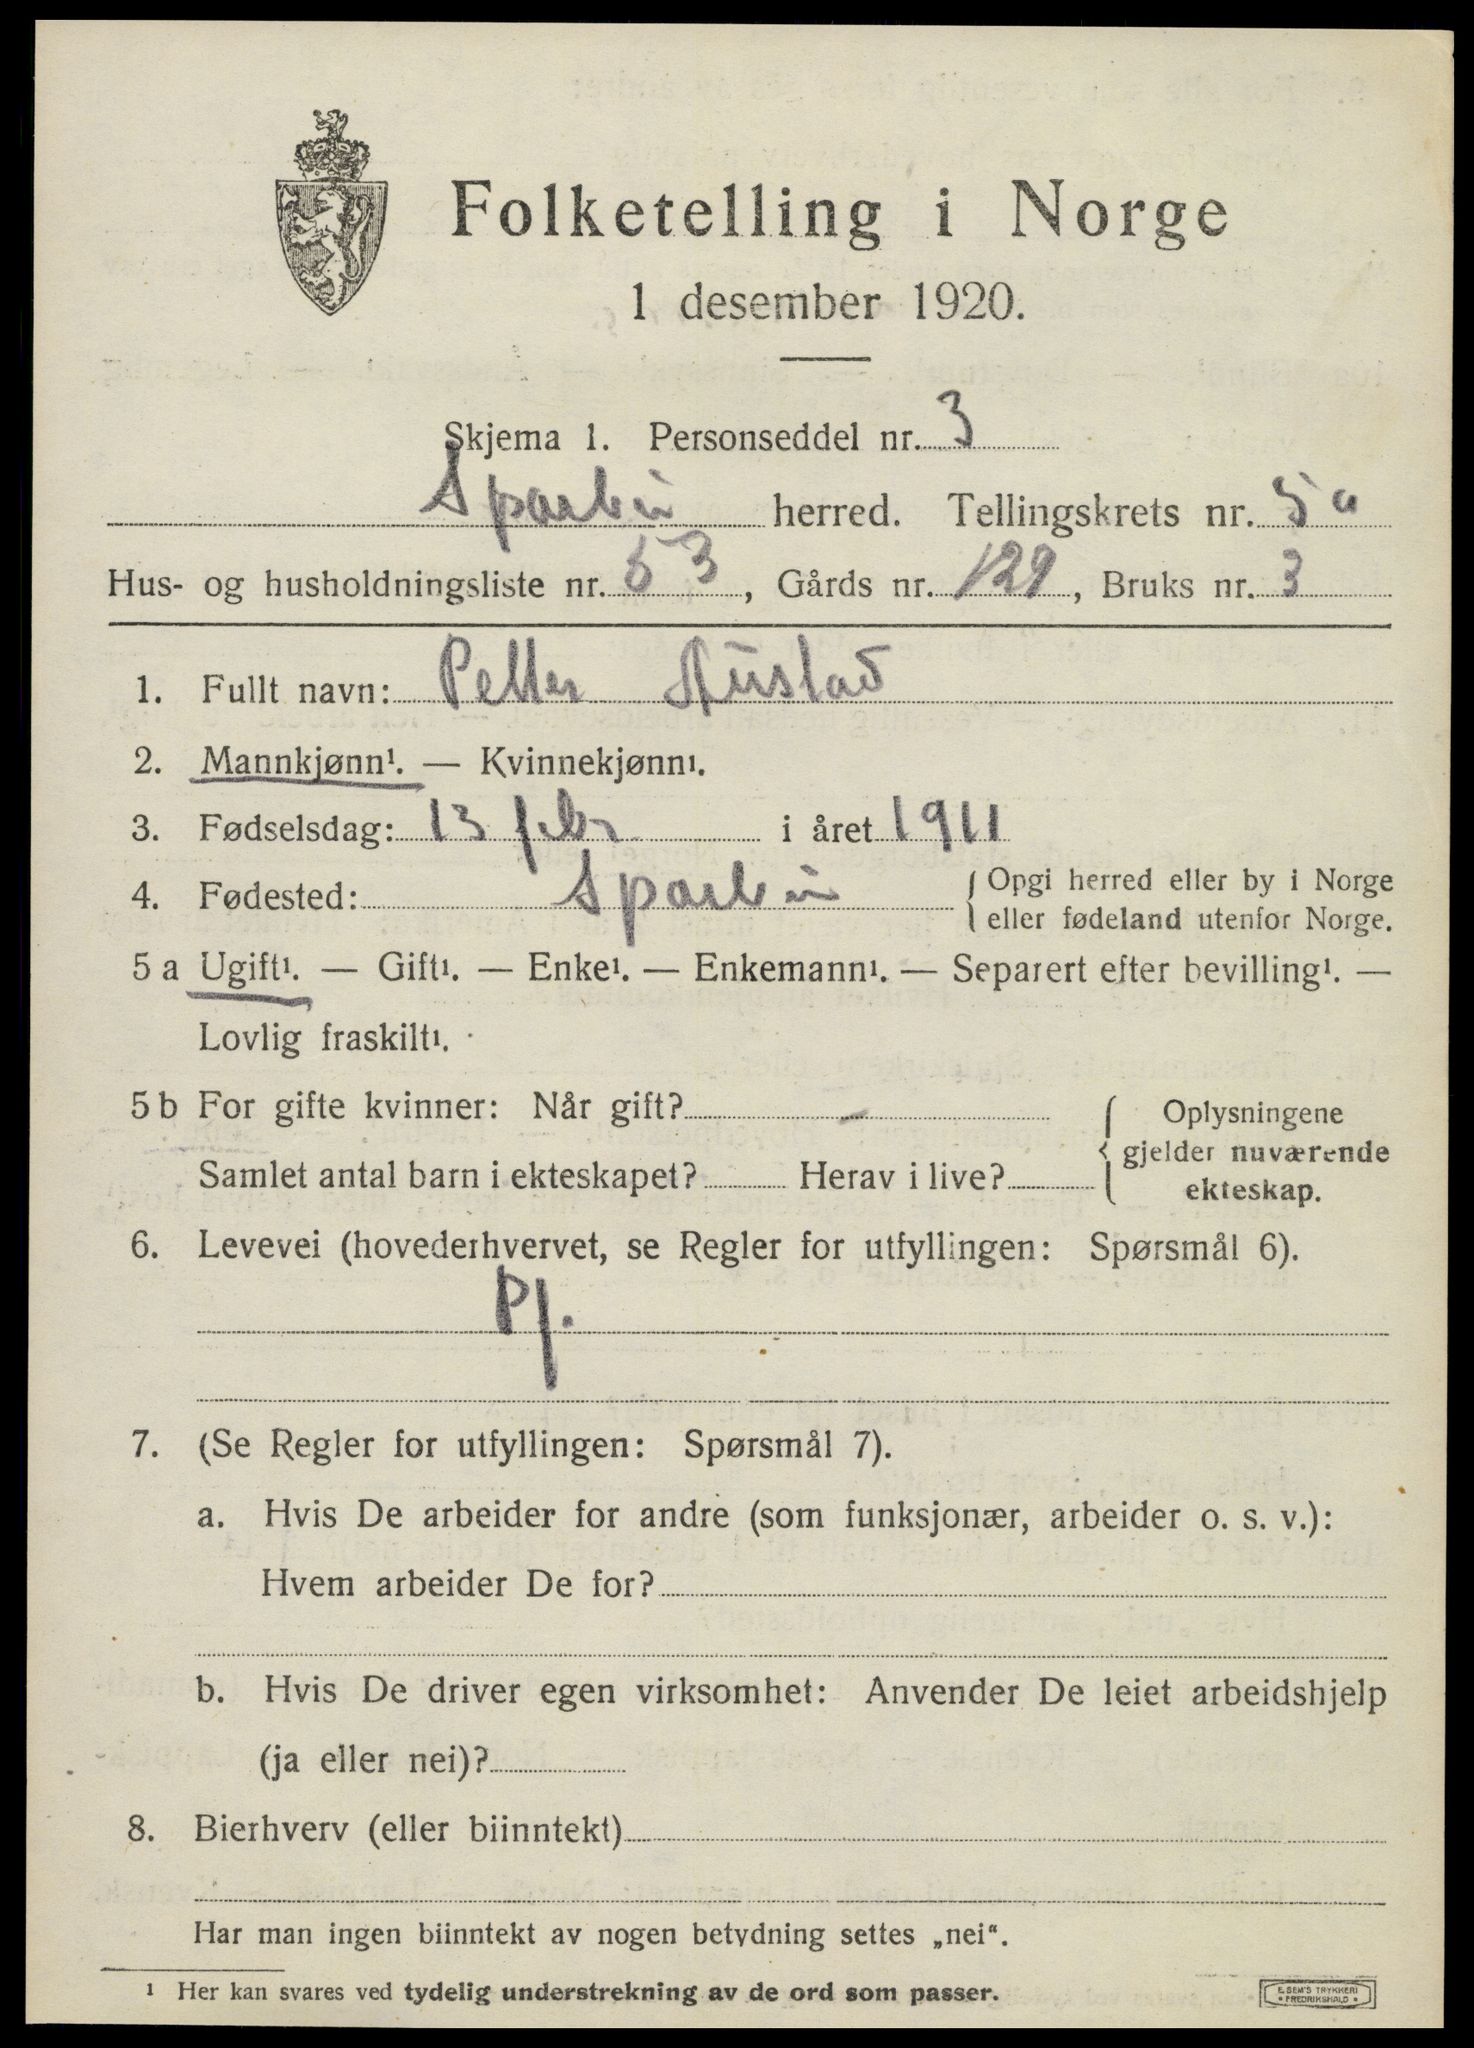 Folketelling i Norge
1 desember 1920.
Skjema 1. Personseddel nr. 3
Sparbu herred. Tellingskrets nr. 5 a
Hus- og husholdningsliste nr. 53, Gårds nr. 129, Bruks nr. 3
1. Fullt navn: Petter
2. Mannkjønn¹. — Kvinnekjønn¹.
3. Fødselsdag: 13 febr i året 1911
4. Fødested: Sparbu { Opgi herred eller by i Norge
eller fødeland utenfor Norge.
5 a Ugift¹. — Gift¹. — Enke¹. — Enkemann¹. — Separert efter bevilling¹. —
Lovlig fraskilt¹.
5 b For gifte kvinner: Når gift? - { Oplysningene
gjelder nuværende
ekteskap.
Samlet antal barn i ekteskapet? Herav i live?
6. Levevei (hovederhvervet, se Regler for utfyllingen: Spørsmål 6).
Pf.
7. (Se Regler for utfyllingen: Spørsmål 7).
a. Hvis De arbeider for andre (som funksjonær, arbeider o. s. v.):
Hvem arbeider De for?
b. Hvis De driver egen virksomhet: Anvender De leiet arbeidshjelp
(ja eller nei)?
8. Bierhverv (eller biinntekt)
Har man ingen biinntekt av nogen betydning settes „nei“.
¹ Her kan svares ved tydelig understrekning av de ord som passer.
E. SEM'S TRYKKERI
• FREDRIKSHALD •